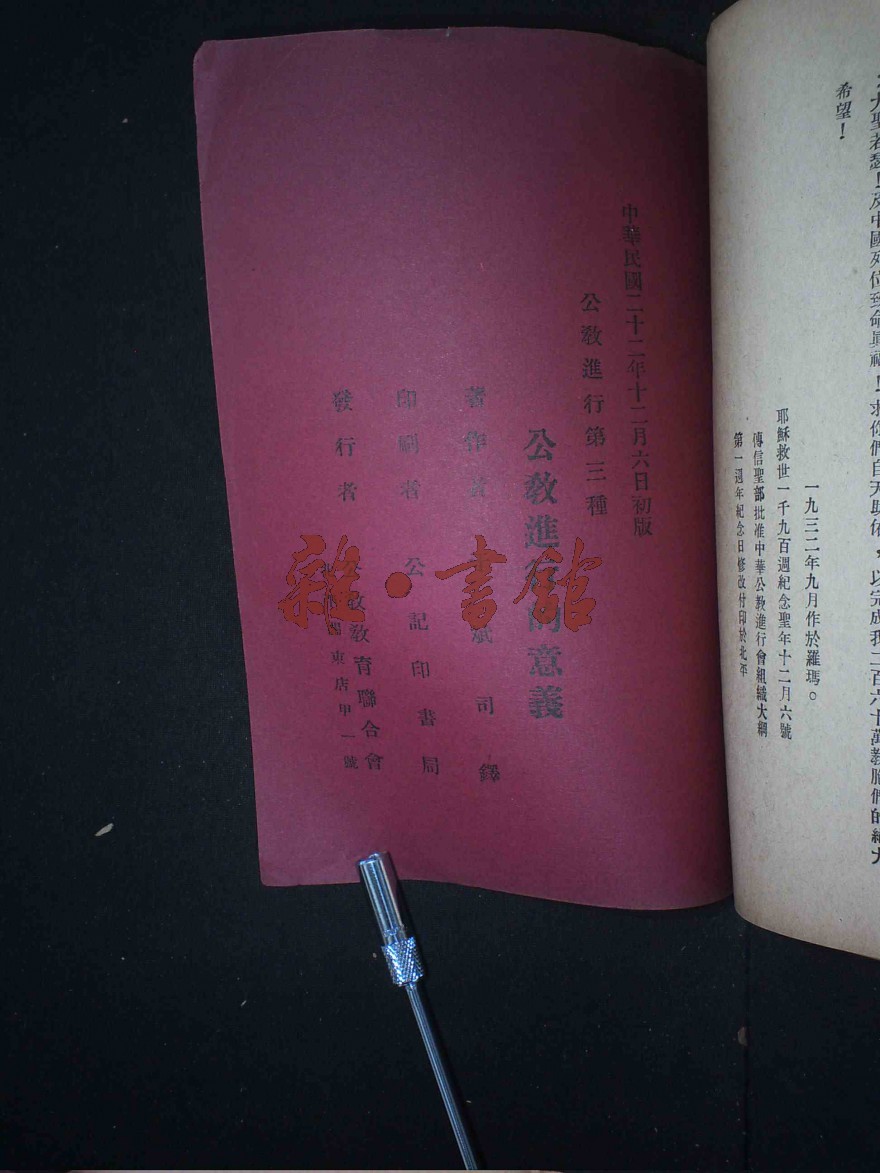 大聖若瑟！及中國列位致命眞福！求你們自天助佑，以完成我二百六十萬敎胞們的絕大
希望！
一九三二年九月作於羅瑪。
耶穌救世一千九百週紀念聖年十二月六號
傳信聖部批准中華公教進行會組織大綱
第一週年紀念日修改付印於北平
中華民國二十二年十二月六日初版
公教進行第三種
公教進行的意義
著作者 斌司鐸
印刷者 公記印書局
發行者 教育聯合會
東店甲一號
雜·書館